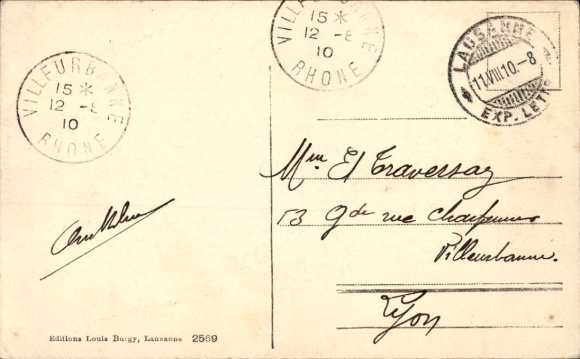 VILLEURBANNE
15 *
12 - 8
10
RHONE
VILLEURBANNE
15 *
12 - 8
10
RHONE
LAUSANNE
11.VIII.10.-8
EXP. LETT.
Mme El Traversay
53 Gde rue Charpennes
Villeurbanne.
Lyon
Editions Louis Burgy, Lausanne 2569